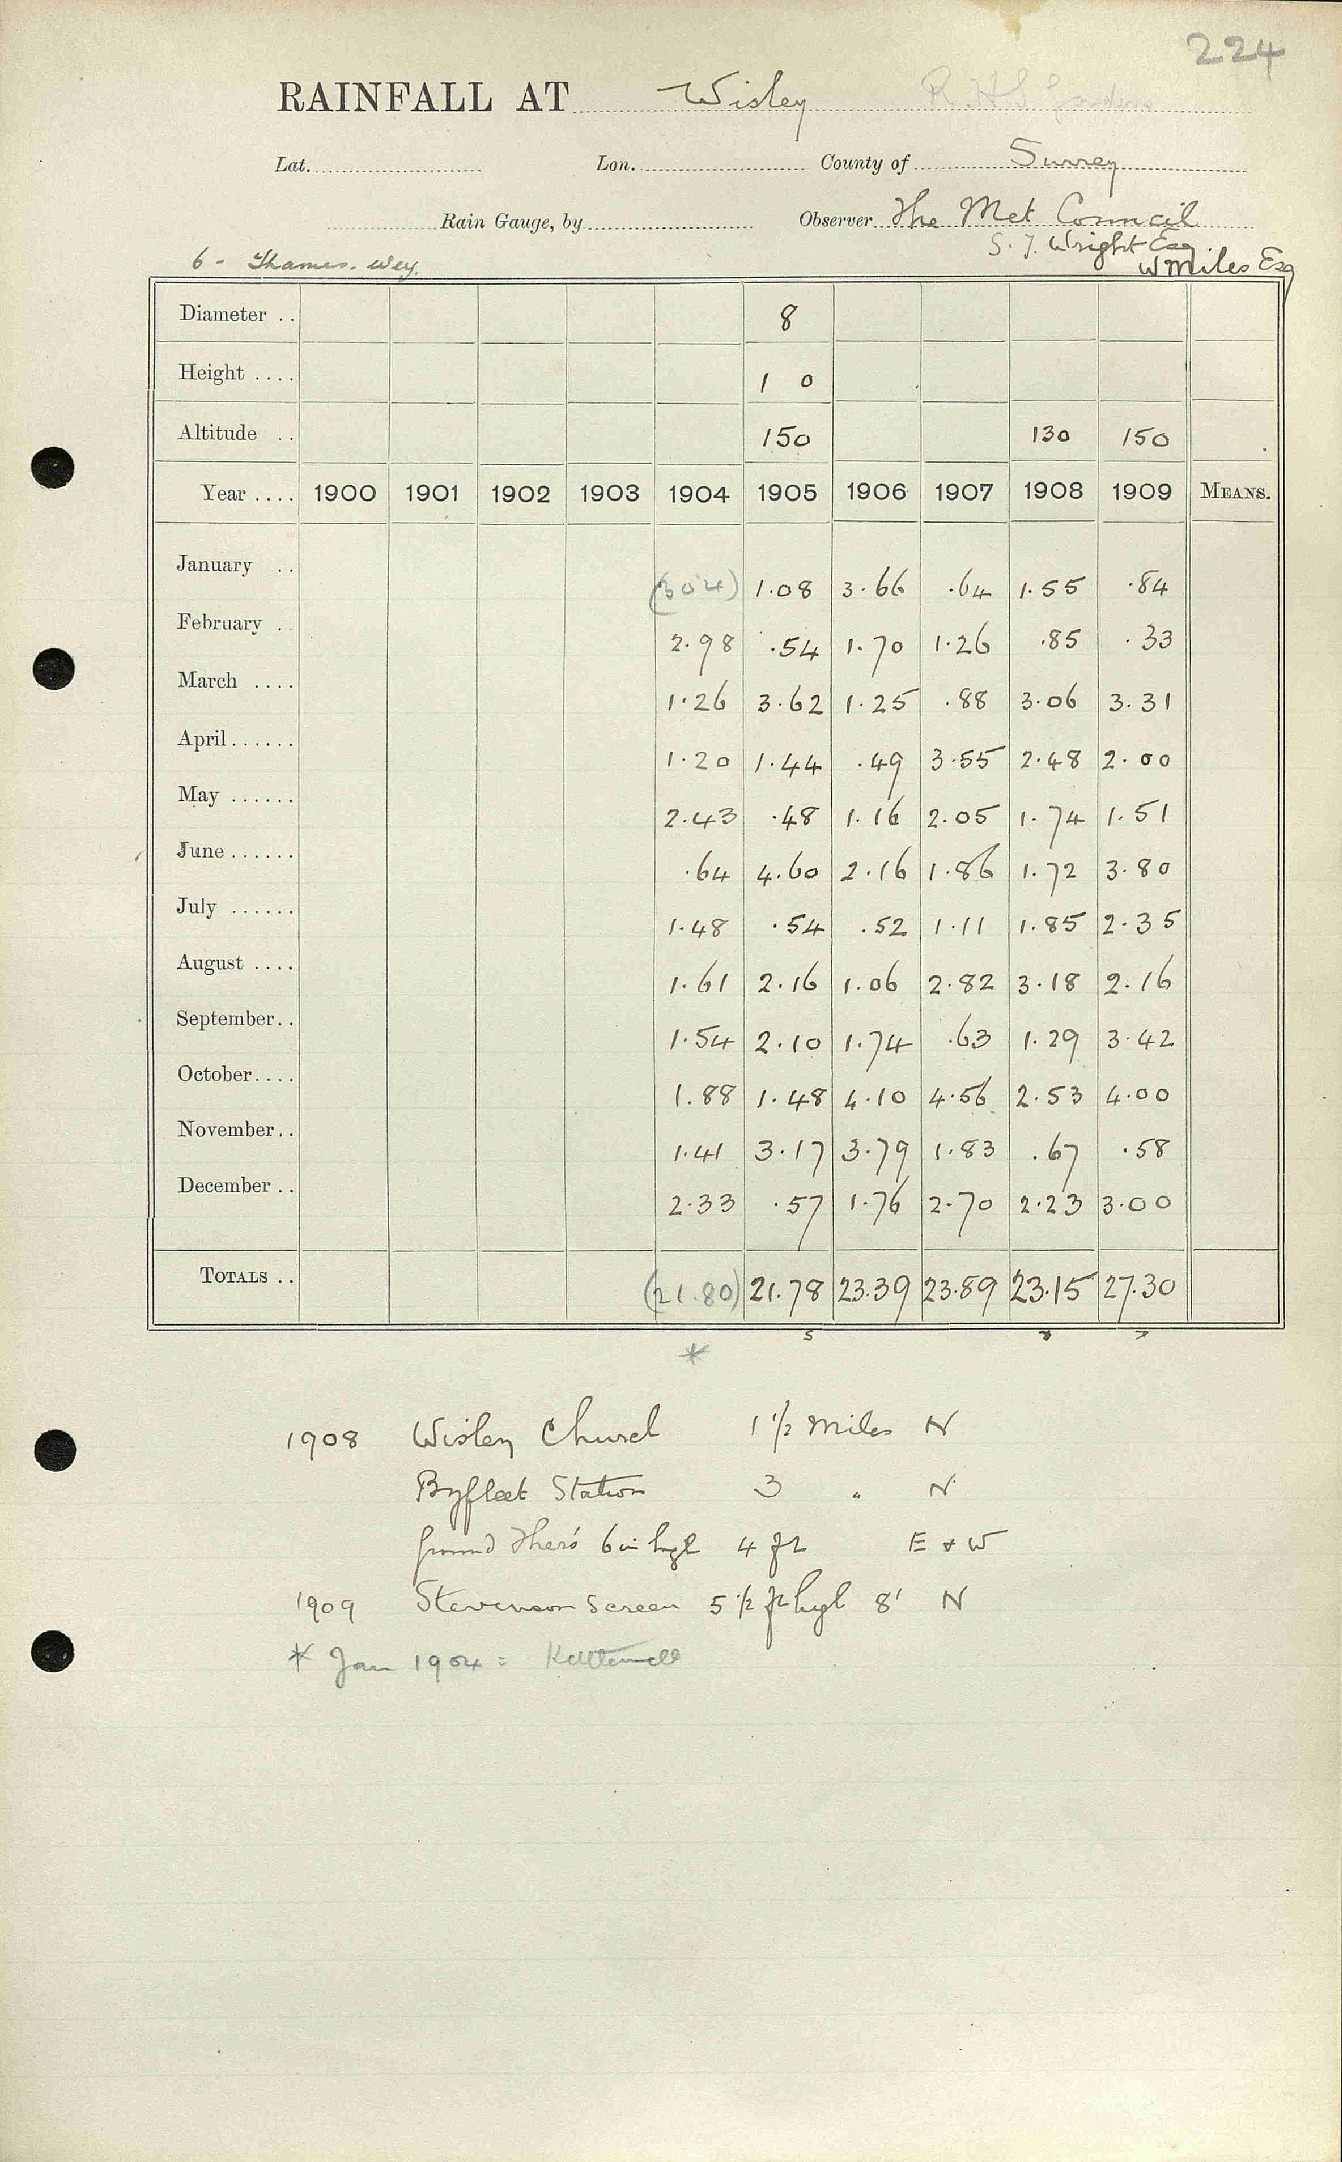 224
RAINFALL AT Wisley R.H.S Gardens
Lat. Lon. County of Surrey
Rain Gauge, by Observer The Met Council
S. J. Wright Esq.
6 - Thames. Wey. W Miles Esq
Diameter .. 8
Height .... 1 0
Altitude .. 150 130 150
Year .... 1900 1901 1902 1903 1904 1905 1906 1907 1908 1909 MEANS.
January .. (3 04) 1.08 3.66 .64 1.55 .84
February . 2.98 .54 1.70 1.26 .85 .33
March .... 1.26 3.62 1.25 .88 3.06 3.31
April ...... 1.20 1.44 .49 3.55 2.48 2.00
May ...... 2.43 .48 1.16 2.05 1.74 1.51
June ...... .64 4.60 2.16 1.86 1.72 3.80
July ...... 1.48 .54 .52 1.11 1.85 2.35
August .... 1.61 2.16 1.06 2.82 3.18 2.16
September .. 1.54 2.10 1.74 .63 1.29 3.42
October .... 1.88 1.48 4.10 4.56 2.53 4.00
November .. 1.41 3.17 3.79 1.83 .67 .58
December .. 2.33 .57 1.76 2.70 2.23 3.00
TOTALS .. (21.80) 21.78 23.39 23.89 23.15 27.30
5 8 7
*
1908 Wisley Church 1 1/2 Miles N
Byfleet Station 3 " N
Ground Thers 6 in high 4 ft E & W
1909 Stevenson Screen 5 1/2 ft high 8' N
* Jan 1904 =